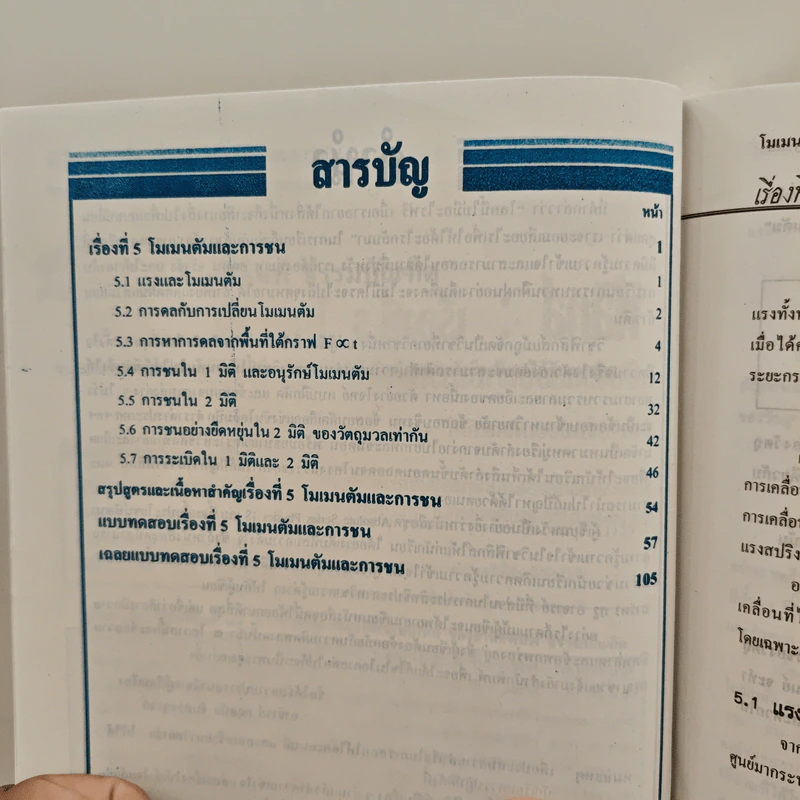 สารบัญ
หน้า
เรื่องที่ 5 โมเมนตัมและการชน 1
5.1 แรงและโมเมนตัม 1
5.2 การดลกับการเปลี่ยนโมเมนตัม 2
5.3 การหาการดลจากพื้นที่ใต้กราฟ F ∝ t 4
5.4 การชนใน 1 มิติ และอนุรักษ์โมเมนตัม 12
5.5 การชนใน 2 มิติ 32
5.6 การชนอย่างยืดหยุ่นใน 2 มิติ ของวัตถุมวลเท่ากัน 42
5.7 การระเบิดใน 1 มิติและ 2 มิติ 46
สรุปสูตรและเนื้อหาสำคัญเรื่องที่ 5 โมเมนตัมและการชน 54
แบบทดสอบเรื่องที่ 5 โมเมนตัมและการชน 57
เฉลยแบบทดสอบเรื่องที่ 5 โมเมนตัมและการชน 105
โมเมน
เรื่องที่
แรงทั้งห
เมื่อได้
ระยะกร
การเคลื่อ
การเคลื่อน
แรงสปริง
เคลื่อนที่
โดยเฉพาะ
5.1 แรง
จาก
ศูนย์มากระท